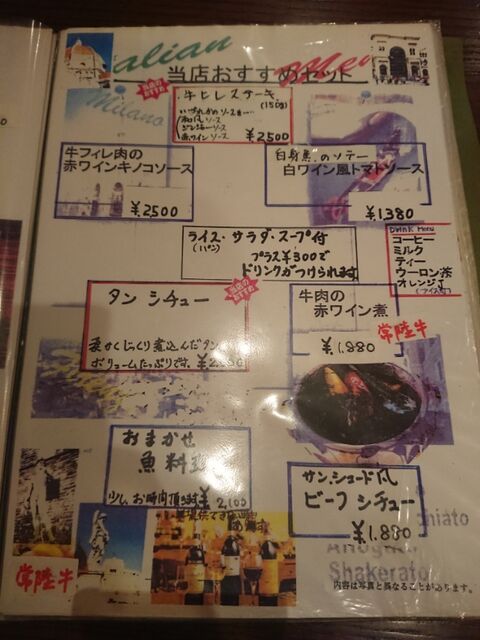 alian
当店おすすめセット
Milano
当店の
おすすめ
牛ヒレステーキ
(150g)
いずれかのソース
和風ソース
ジンジャーソース
赤ワインソース
¥2500
牛フィレ肉の
赤ワインキノコソース
¥2500
白身魚のソテー
白ワイン風トマトソース
¥1,380
ライス・サラダ・スープ付
(パン)
プラス¥300で
ドリンクがつけられます
Drink Menu
コーヒー
ミルク
ティー
ウーロン茶
オレンジJ
当店の
おすすめ
タン シチュー
柔かくじっくり煮込んだタン
ボリュームたっぷりです。
牛肉の
赤ワイン煮
¥1,880
常陸牛
おまかせ
魚料理
少し、お時間頂きます
¥2,100
サンシュード風
ビーフ シチュー
¥1,880
常陸牛
Shakerato
内容は写真と異なることがあります。